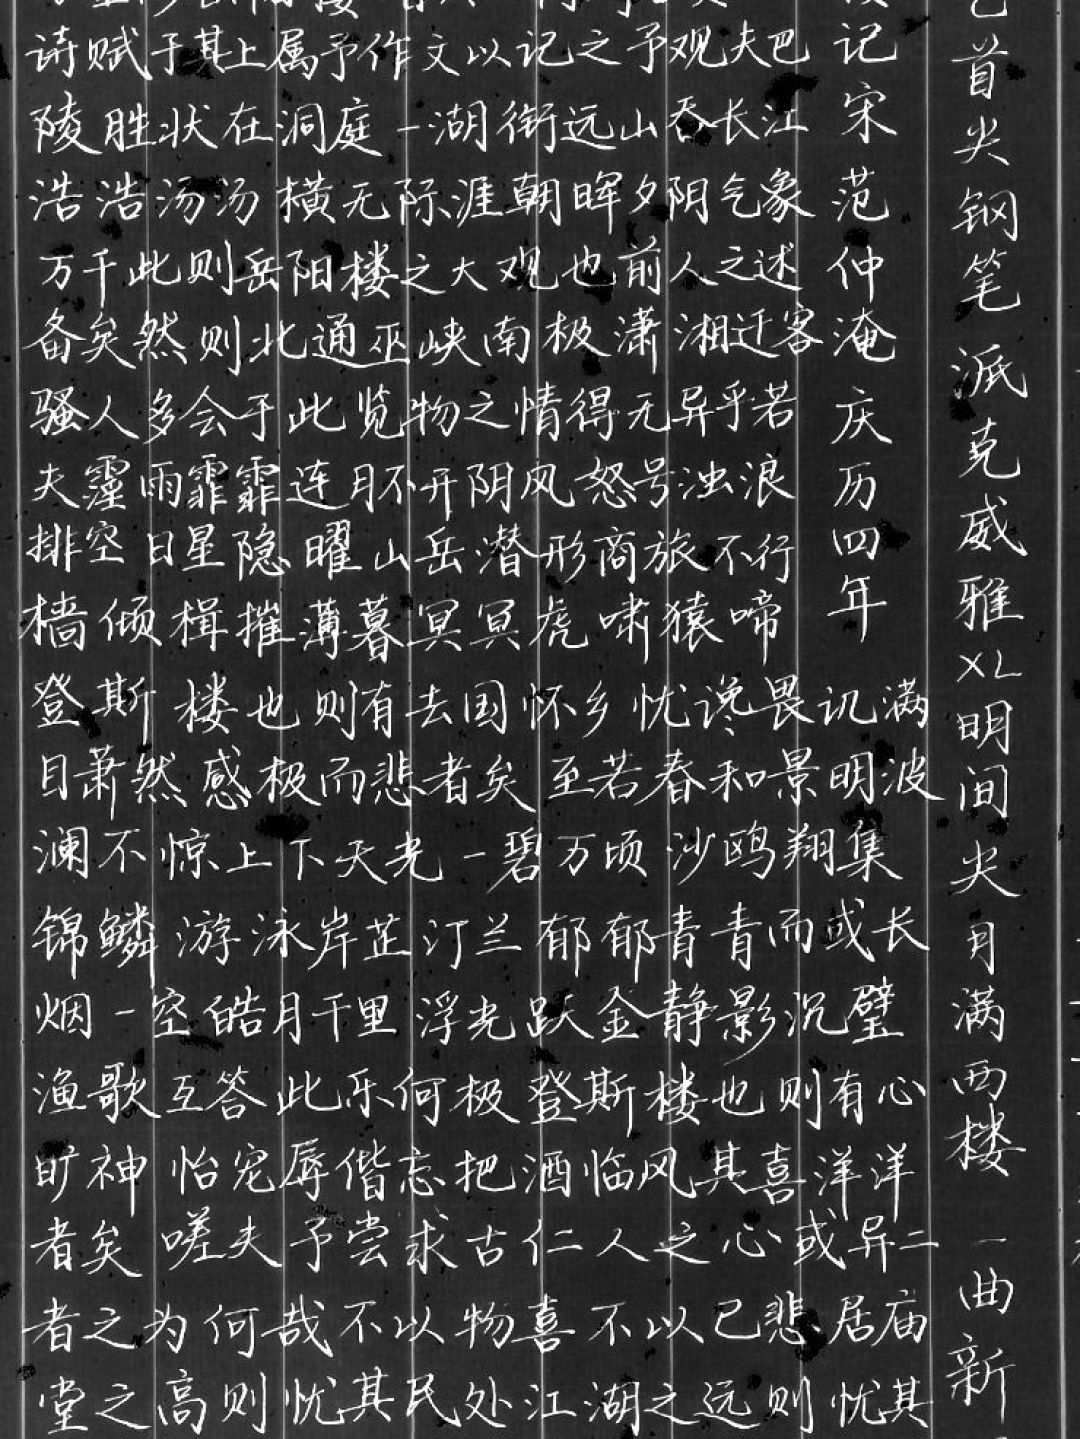 诗赋于其上属予作文以记之予观夫巴
陵胜状在洞庭一湖衔远山吞长江
浩浩汤汤横无际涯朝晖夕阴气象
万千此则岳阳楼之大观也前人之述
备矣然则北通巫峡南极潇湘迁客
骚人多会于此览物之情得无异乎若
夫霪雨霏霏连月不开阴风怒号浊浪
排空日星隐曜山岳潜形商旅不行
樯倾楫摧薄暮冥冥虎啸猿啼
登斯楼也则有去国怀乡忧谗畏讥满
目萧然感极而悲者矣至若春和景明波
澜不惊上下天光一碧万顷沙鸥翔集
锦鳞游泳岸芷汀兰郁郁青青而或长
烟一空皓月千里浮光跃金静影沉璧
渔歌互答此乐何极登斯楼也则有心
旷神怡宠辱偕忘把酒临风其喜洋洋
者矣嗟夫予尝求古仁人之心或异二
者之为何哉不以物喜不以己悲居庙
堂之高则忧其民处江湖之远则忧其
记宋范仲淹庆历四年
首尖钢笔派克威雅XL明间尖月满西楼一曲新